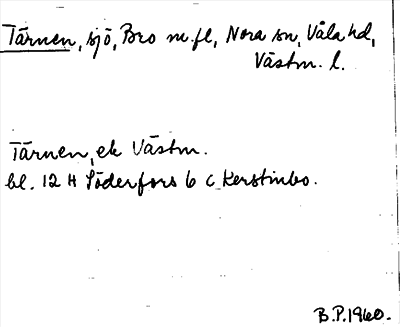 Tärnen, sjö, Bro m.fl, Nora sn, Våla hd,
Västm. l.
Tärnen, ek Västm.
bl. 12 H Söderfors 6 c Kerstinbo.
B.P. 1960.